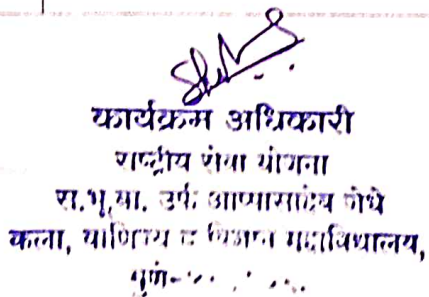 कार्यक्रम अधिकारी
राष्ट्रीय सेवा योजना
स.भू.बा. उर्फ आप्पासाहेब जेधे
कला, वाणिज्य व विज्ञान महाविद्यालय,
पुणे-